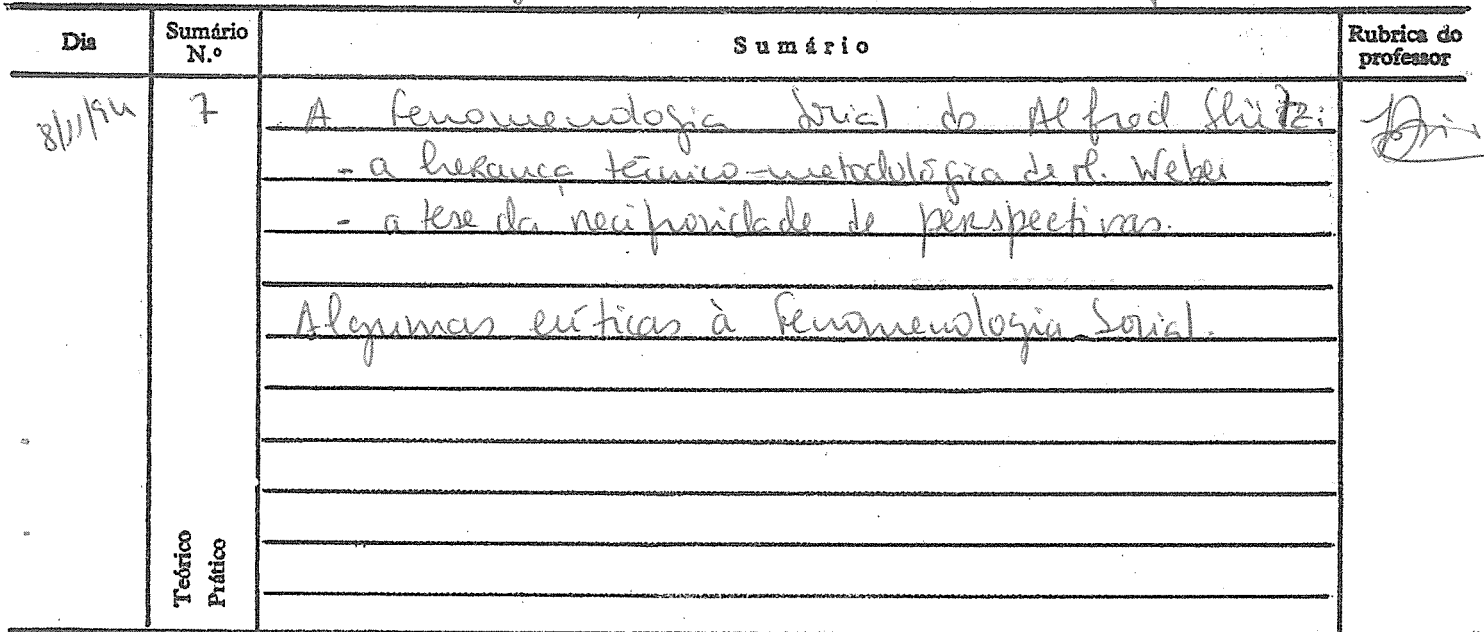 Dia
Sumário N.º
Sumário
Rubrica do professor
8/11/94
7
A Fenomenologia Social do Alfred Shütz:
- a herança teórico-metodológica de M. Weber
- a tese da reciprocidade de perspectivas.
Algumas críticas à Fenomenologia Social.
Teórico
Prático